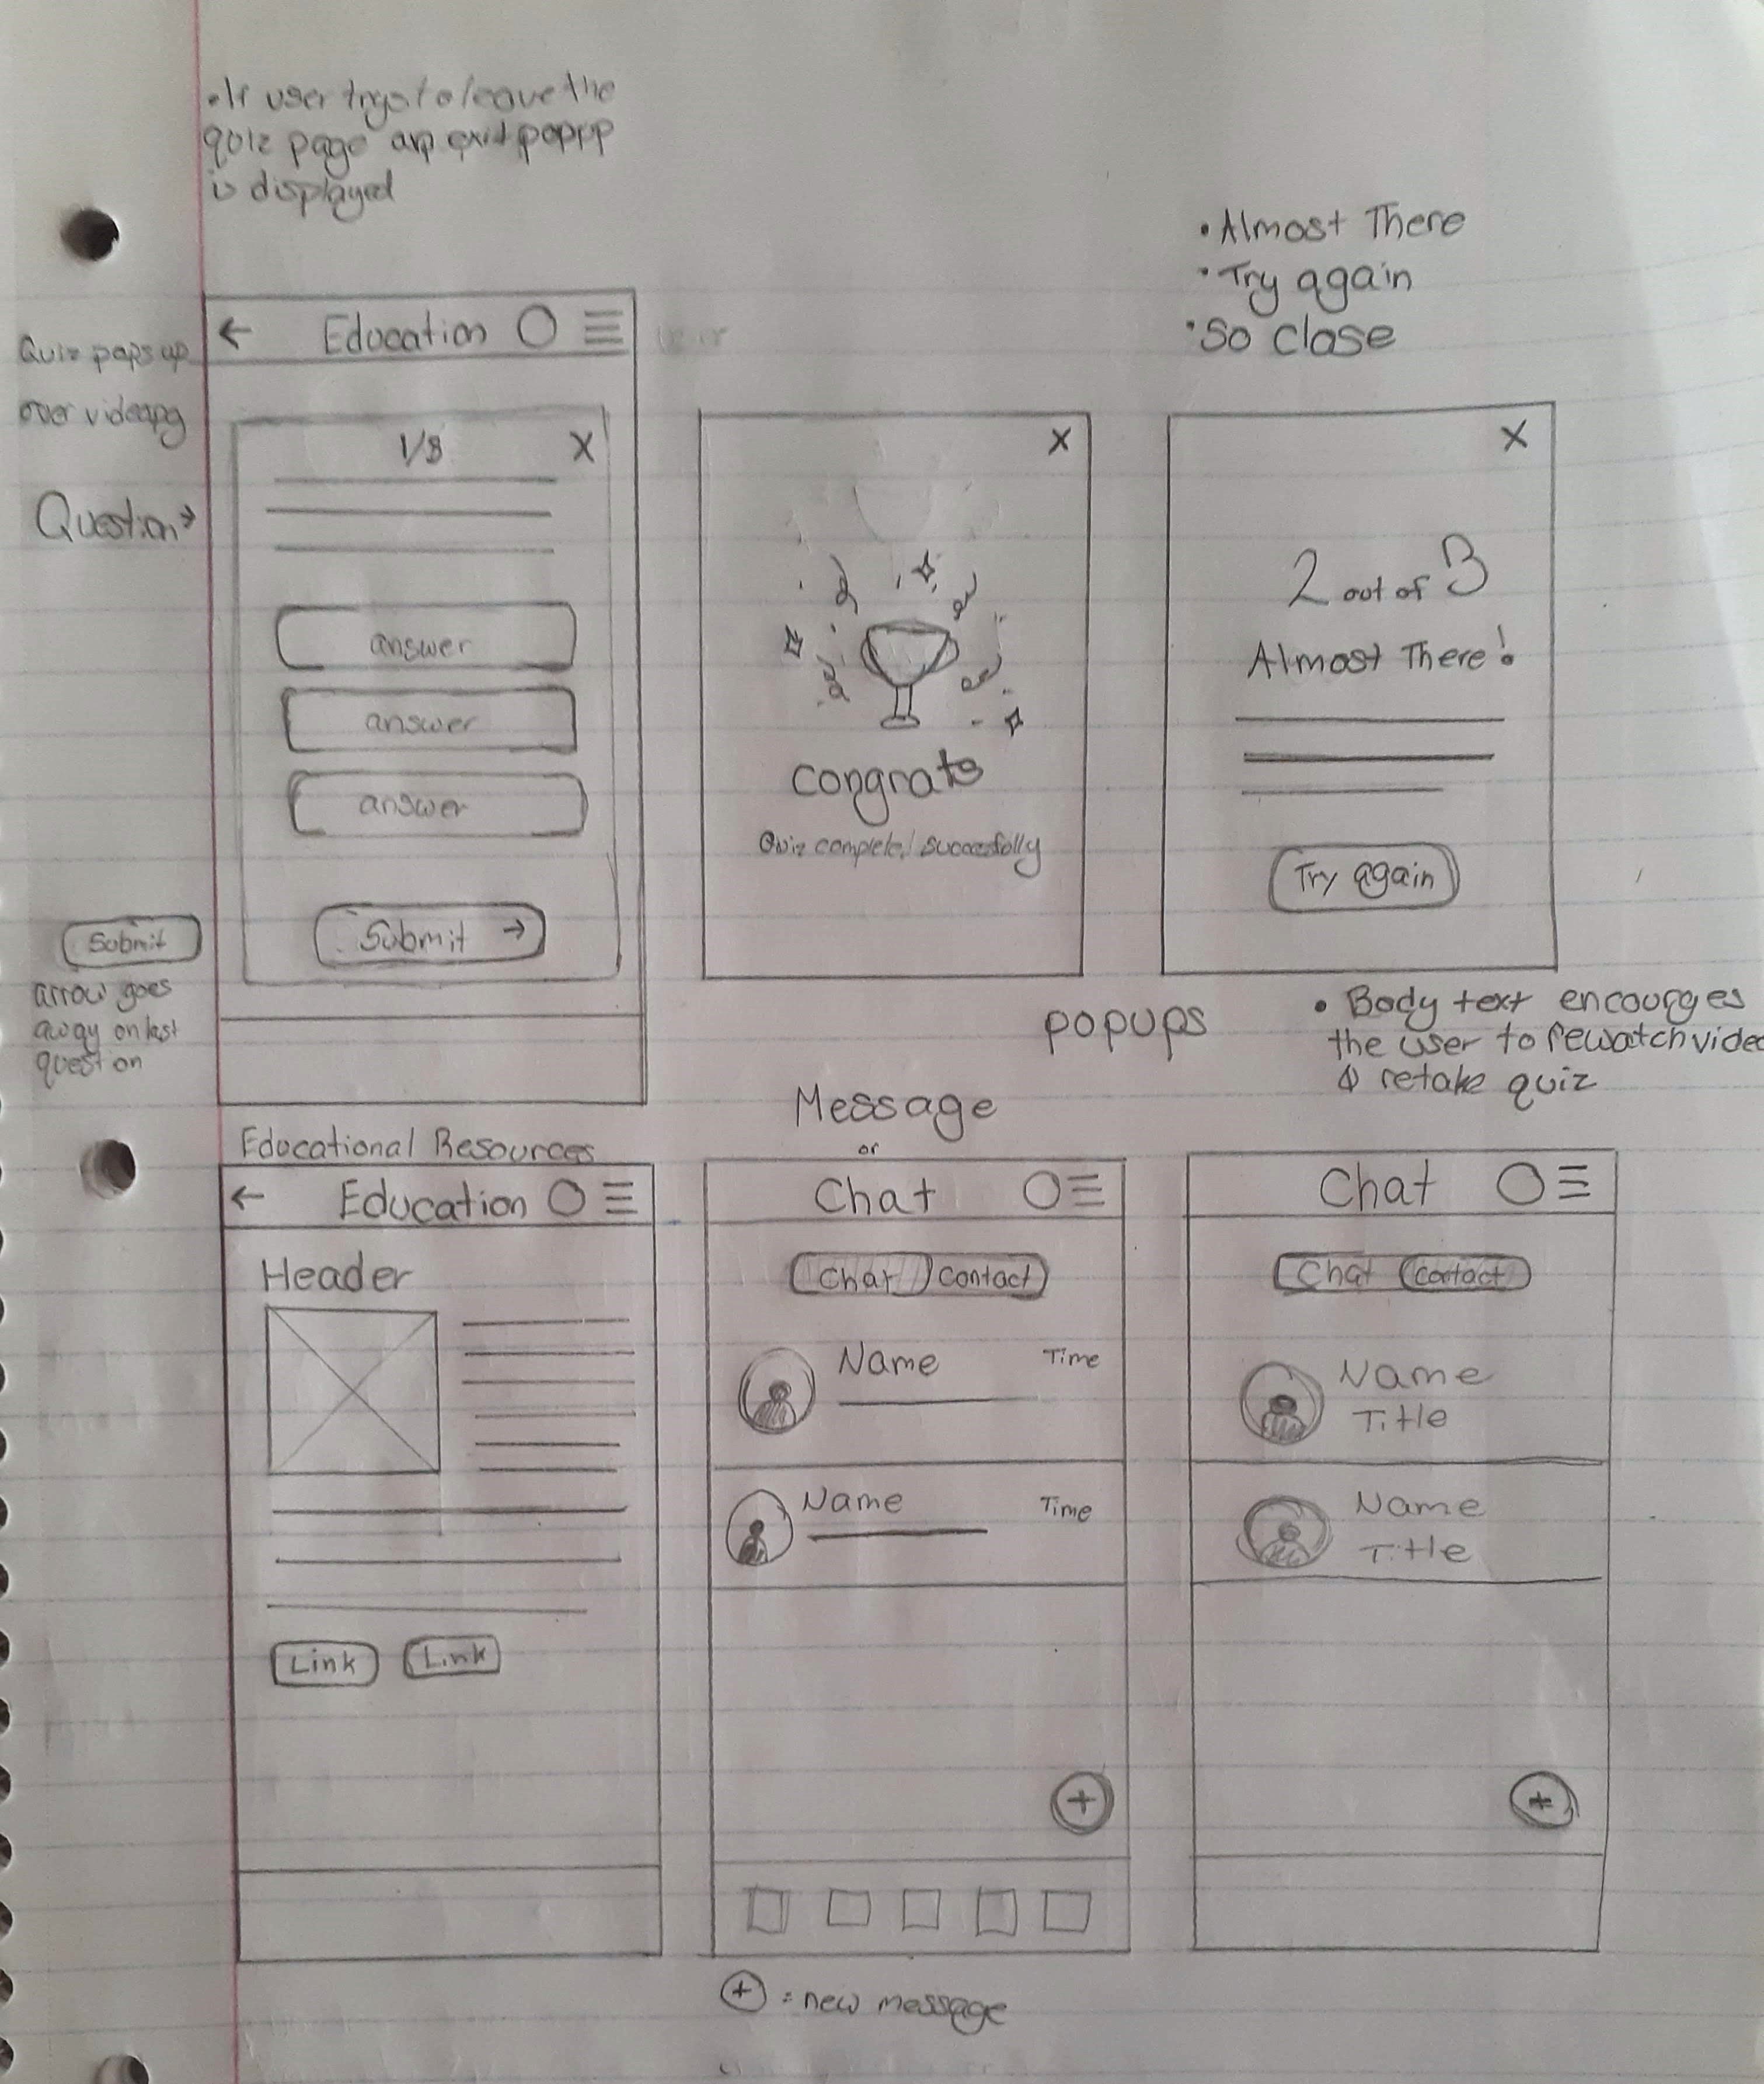 • If user trys to leave the
quiz page an exit popup
is displayed
• Almost There
• Try again
• So close
Quiz pops up
over videopg
Question →
← Education
1/3 X
answer
answer
answer
Submit →
Submit
arrow goes
away on last
question
X
Congrats
Quiz completed successfully
X
2 out of 3
Almost There!
Try again
popups
• Body text encourges
the user to rewatch video
& retake quiz
Educational Resources
← Education
Header
Link Link
Message
or
Chat
Chat Contact
Name Time
Name Time
+
+ = new message
Chat
Chat Contact
Name
Title
Name
Title
+